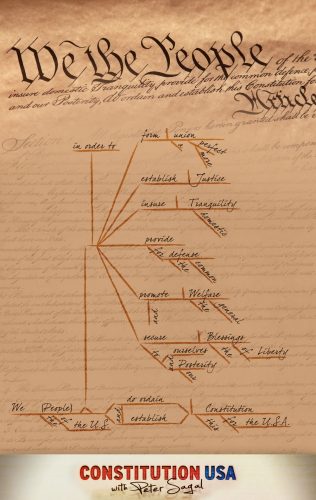 We the People of the
insure domestic Tranquility, provide for the common defence,
and our Posterity, do ordain and establish this Constitution
Article
Section
herein granted shall be
in order to
form union
a perfect
more
establish Justice
insure Tranquility
domestic
provide
for defense
the common
promote Welfare
and the general
secure Blessings
to ourselves the of Liberty
and Posterity
our
We (People) do ordain Constitution
the of and establish this for
the U.S. the U.S.A.
CONSTITUTION USA
with Peter Sagal